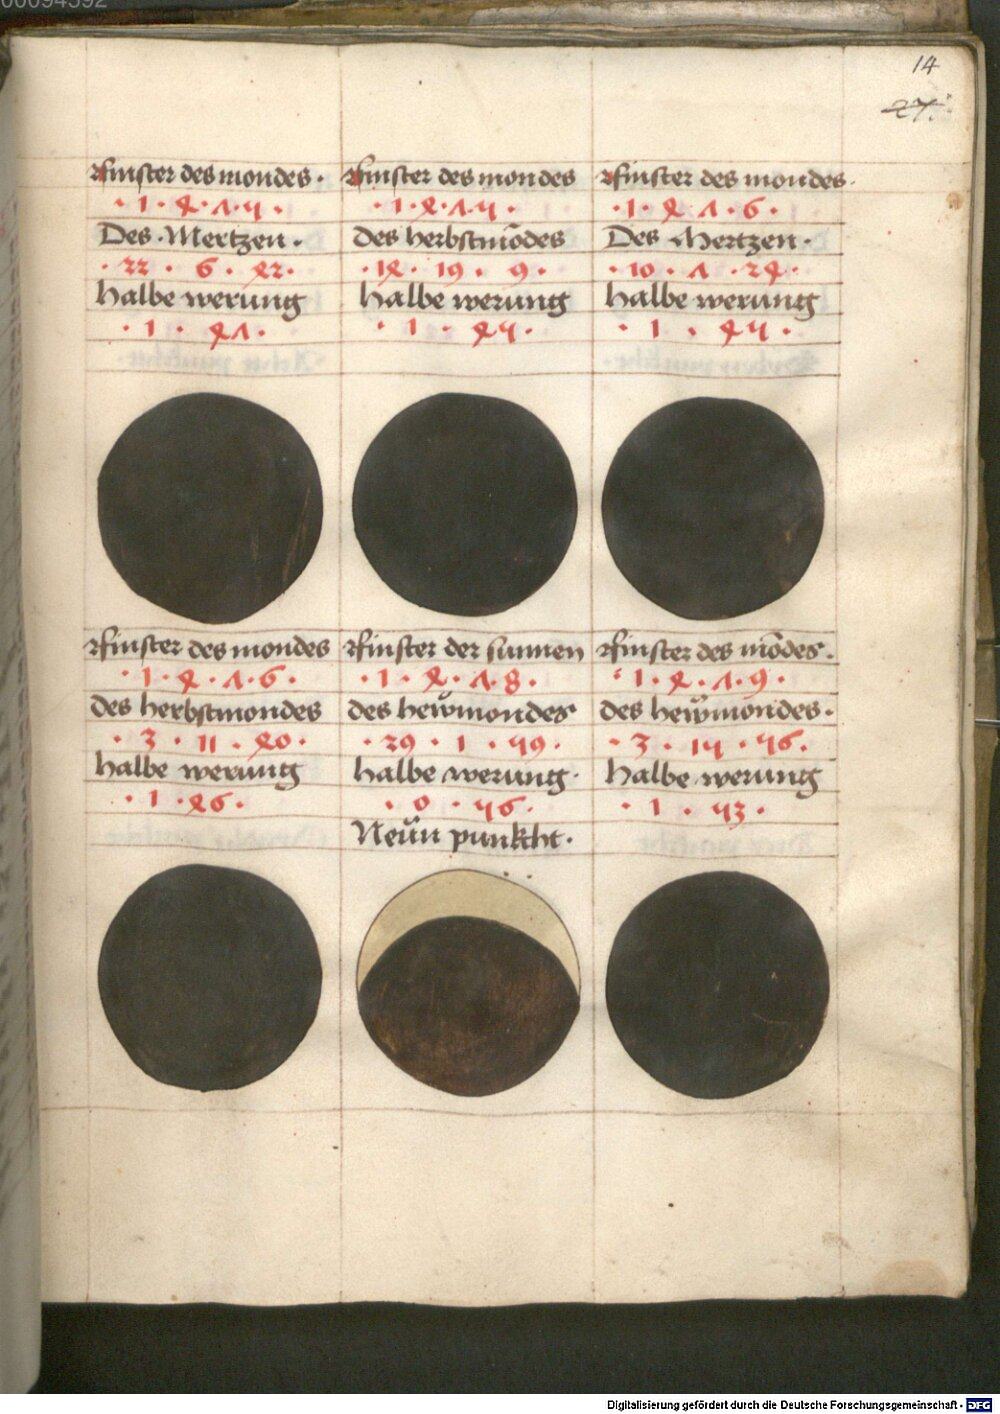 00094592
14
27.
Finster des mondes ·
· 1 · 4 · 7 · 5 ·
Des · Mertzen ·
· 22 · 6 · 42 ·
halbe werung
· 1 · 47 ·
Finster des mondes
· 1 · 4 · 7 · 5 ·
des herbstmōdes
· 14 · 19 · 9 ·
halbe werung
· 1 · 45 ·
Finster des mondes ·
· 1 · 4 · 7 · 6 ·
Des Mertzen ·
· 10 · 7 · 24 ·
halbe werung
· 1 · 45 ·
Finster des mondes
· 1 · 4 · 7 · 6 ·
des herbstmondes
· 3 · 11 · 40 ·
halbe werung
· 1 · 46 ·
Finster der sunnen
· 1 · 4 · 7 · 8 ·
des hewmondes
· 29 · 1 · 59 ·
halbe werung ·
· 0 · 56 ·
Neün punckht ·
Finster des mōdes ·
· 1 · 4 · 7 · 9 ·
des hewmondes ·
· 3 · 15 · 56 ·
halbe werung
· 1 · 53 ·
Digitalisierung gefördert durch die Deutsche Forschungsgemeinschaft - DFG